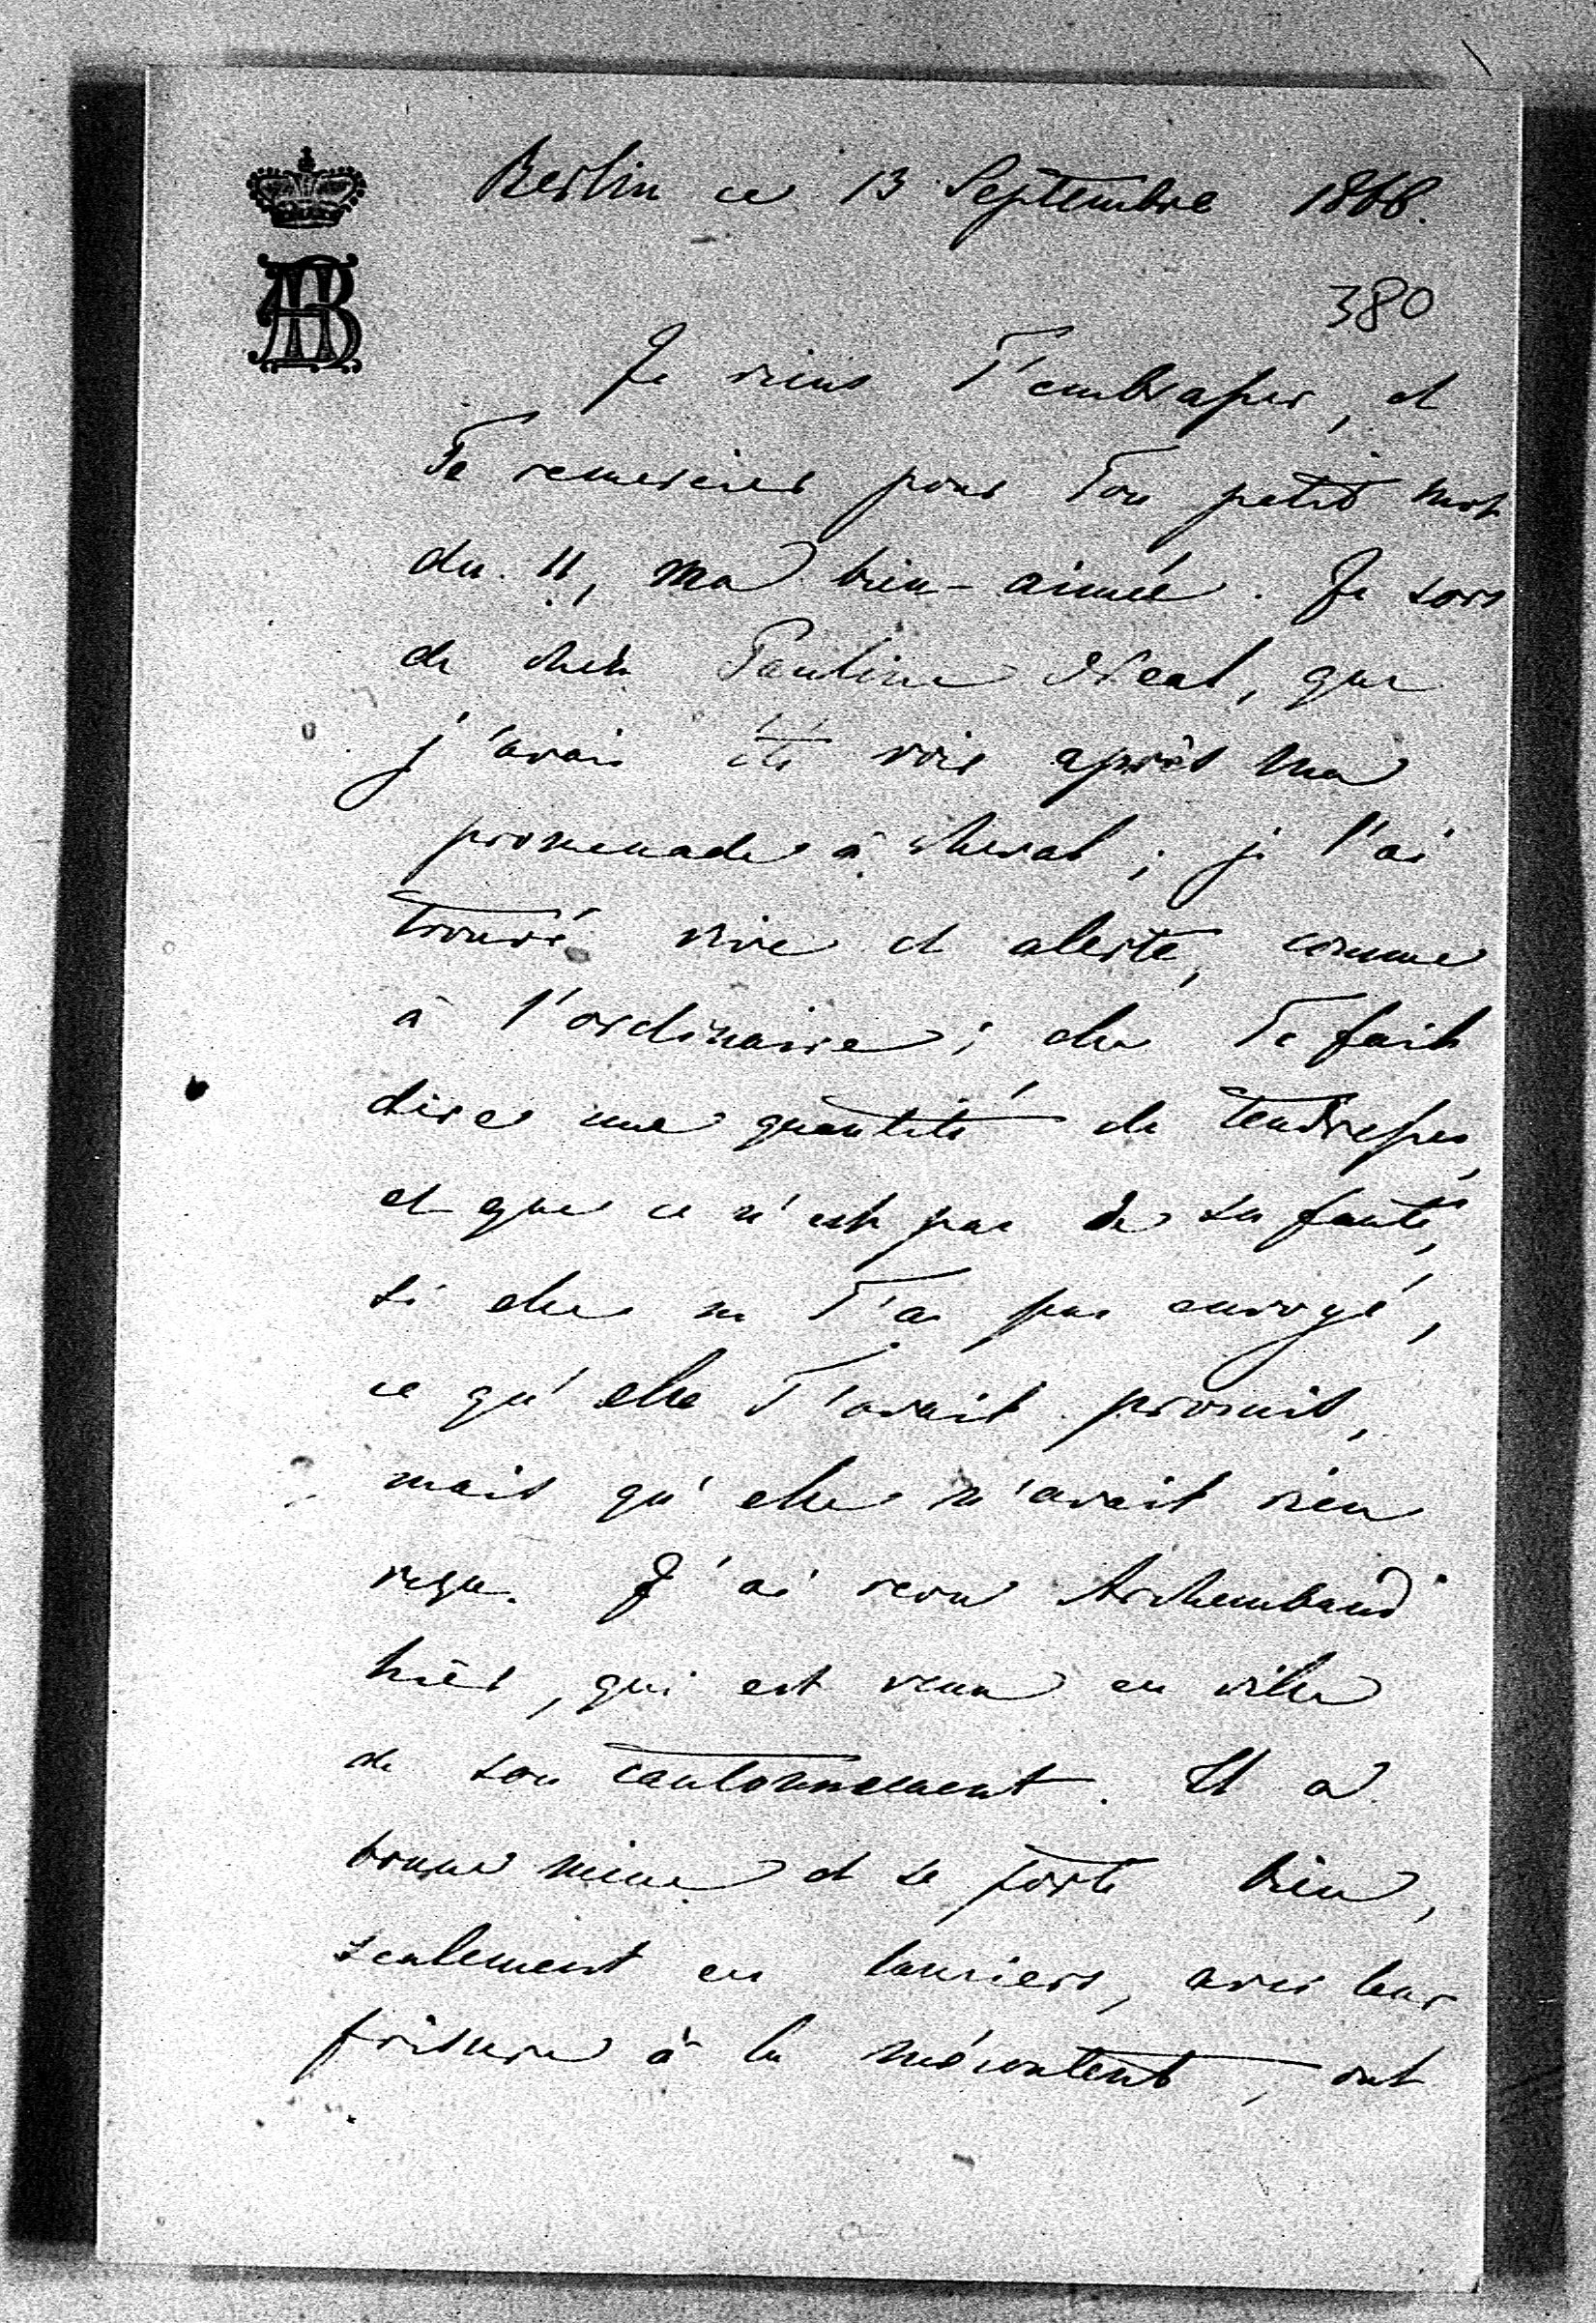 Berlin ce 13 Septembre 1868.
AB
380
Je viens T'embrasser, et
Te remercier pour Ton petit mot
du 11, ma bien-aimée. Je sors
de chez Pauline Neal, que
j'avais été voir après ma
promenade à cheval; je l'ai
trouvé vive et alerte, comme
à l'ordinaire; elle Te fait
dire une quantité de tendresses,
et que ce n'est pas de sa faute,
si elle ne T'a pas envoyé,
ce qu'elle T'avait promis,
mais qu'elle n'avait rien
reçu. J'ai revu Archembaud
hier, qui est venu en ville
de son cantonnement. Il a
bonne mine et se porte bien,
seulement en lanciers, avec leur
frisure à la mécontent, ont